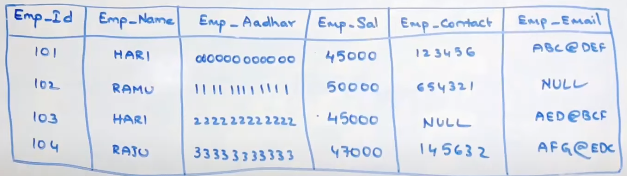 Emp_Id Emp_Name Emp_Aadhar Emp_Sal Emp_Contact Emp_Email
101 HARI 000000000000 45000 123456 ABC@DEF
102 RAMU 111111111111 50000 654321 NULL
103 HARI 222222222222 45000 NULL AED@BCF
104 RAJU 333333333333 47000 145632 AFG@EDC